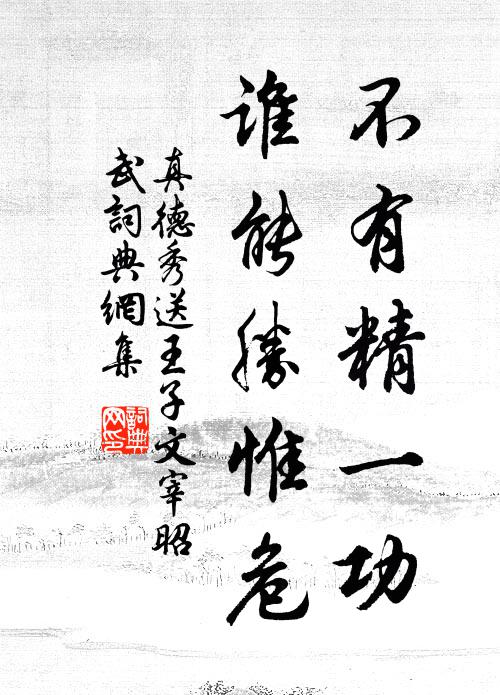 不有精一功
誰能勝惟危
真德秀送王子文宰昭
武詞典網集
詞典网印